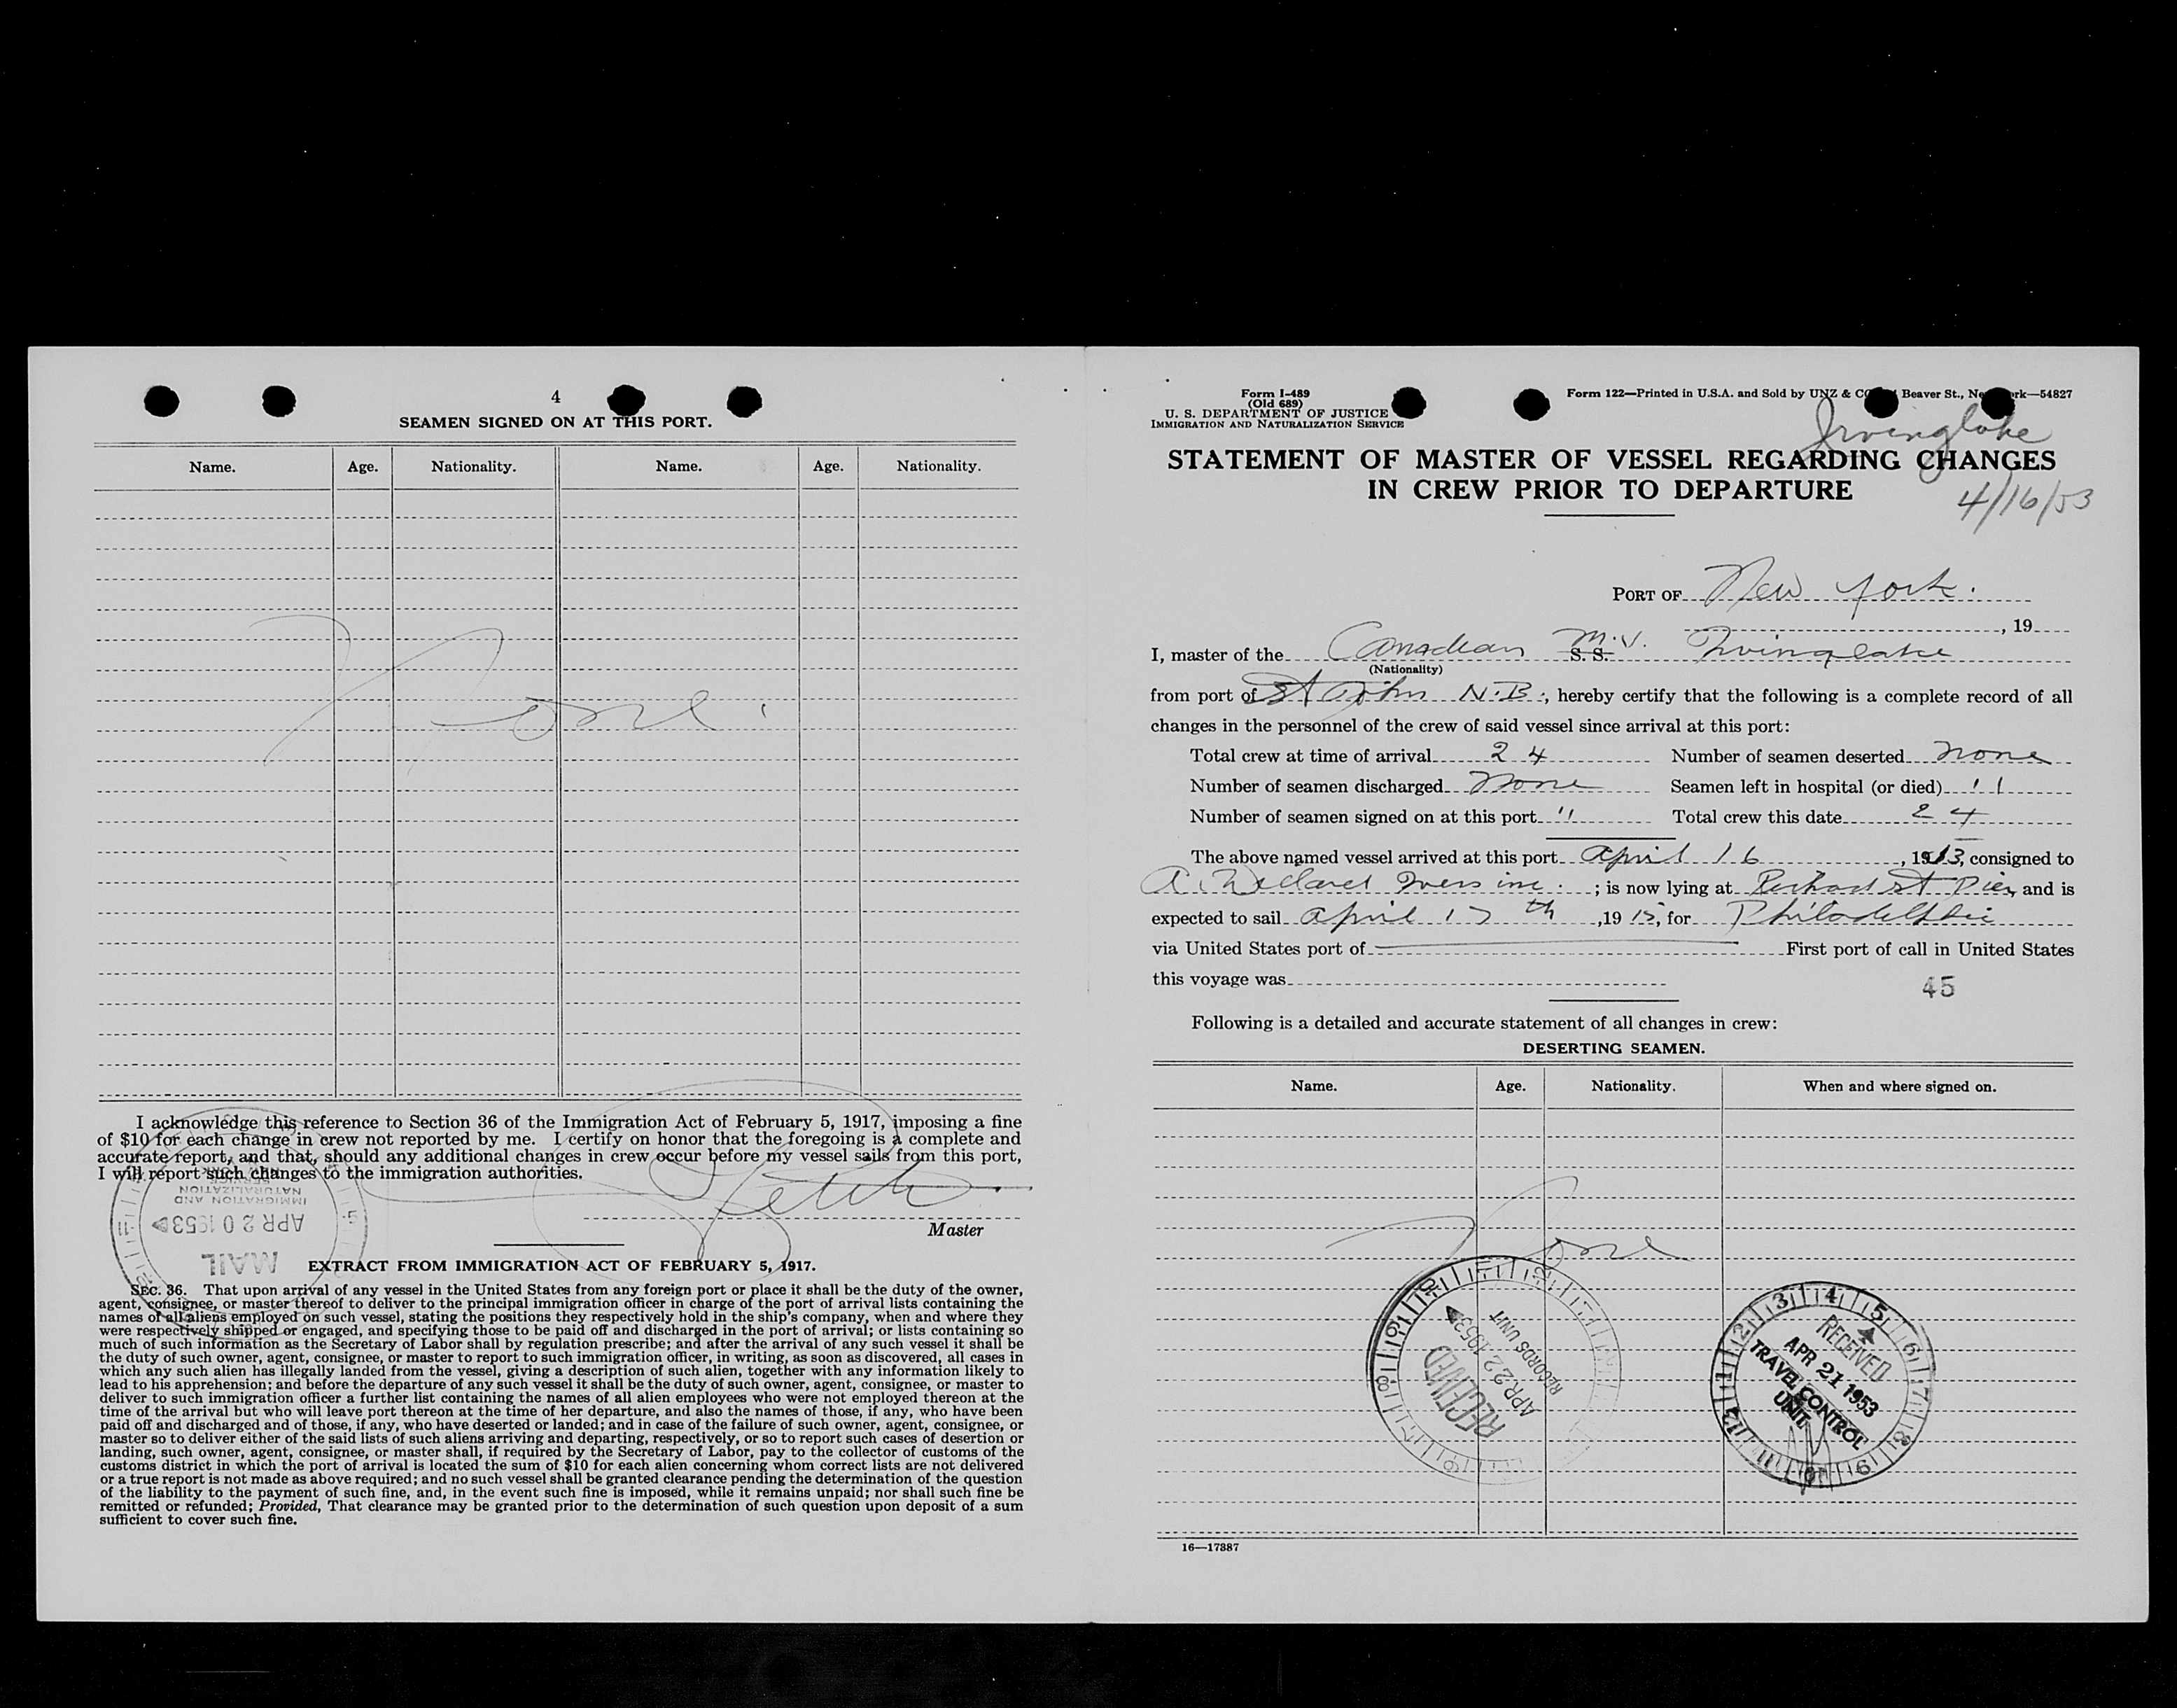 4
SEAMEN SIGNED ON AT THIS PORT.
Name. Age. Nationality. Name. Age. Nationality.
None.
I acknowledge this reference to Section 36 of the Immigration Act of February 5, 1917, imposing a fine
of $10 for each change in crew not reported by me. I certify on honor that the foregoing is a complete and
accurate report, and that, should any additional changes in crew occur before my vessel sails from this port,
I will report such changes to the immigration authorities.
NEW YORK
SERVICE
NATURALIZATION
IMMIGRATION AND
APR 20 1953
MAIL
Master
EXTRACT FROM IMMIGRATION ACT OF FEBRUARY 5, 1917.
SEC. 36. That upon arrival of any vessel in the United States from any foreign port or place it shall be the duty of the owner,
agent, consignee, or master thereof to deliver to the principal immigration officer in charge of the port of arrival lists containing the
names of all aliens employed on such vessel, stating the positions they respectively hold in the ship's company, when and where they
were respectively shipped or engaged, and specifying those to be paid off and discharged in the port of arrival; or lists containing so
much of such information as the Secretary of Labor shall by regulation prescribe; and after the arrival of any such vessel it shall be
the duty of such owner, agent, consignee, or master to report to such immigration officer, in writing, as soon as discovered, all cases in
which any such alien has illegally landed from the vessel, giving a description of such alien, together with any information likely to
lead to his apprehension; and before the departure of any such vessel it shall be the duty of such owner, agent, consignee, or master to
deliver to such immigration officer a further list containing the names of all alien employees who were not employed thereon at the
time of the arrival but who will leave port thereon at the time of her departure, and also the names of those, if any, who have been
paid off and discharged and of those, if any, who have deserted or landed; and in case of the failure of such owner, agent, consignee, or
master so to deliver either of the said lists of such aliens arriving and departing, respectively, or so to report such cases of desertion or
landing, such owner, agent, consignee, or master shall, if required by the Secretary of Labor, pay to the collector of customs of the
customs district in which the port of arrival is located the sum of $10 for each alien concerning whom correct lists are not delivered
or a true report is not made as above required; and no such vessel shall be granted clearance pending the determination of the question
of the liability to the payment of such fine, and, in the event such fine is imposed, while it remains unpaid; nor shall such fine be
remitted or refunded; Provided, That clearance may be granted prior to the determination of such question upon deposit of a sum
sufficient to cover such fine.
Form I-489
(Old 689)
U. S. DEPARTMENT OF JUSTICE
IMMIGRATION AND NATURALIZATION SERVICE
Form 122—Printed in U.S.A. and Sold by UNZ & CO Beaver St., Ne rk—54827
Irvinglake
STATEMENT OF MASTER OF VESSEL REGARDING CHANGES
IN CREW PRIOR TO DEPARTURE
4/16/53
PORT OF New York.
, 19
I, master of the Canadian S. S. M.V. Irvinglake
(Nationality)
from port of St John N.B., hereby certify that the following is a complete record of all
changes in the personnel of the crew of said vessel since arrival at this port:
Total crew at time of arrival 24 Number of seamen deserted none
Number of seamen discharged None Seamen left in hospital (or died) "
Number of seamen signed on at this port " Total crew this date 24
The above named vessel arrived at this port April 16, 19 3, consigned to
; is now lying at St Pier, and is
expected to sail April 17th, 19 , for Philadelphia
via United States port of First port of call in United States
this voyage was
45
Following is a detailed and accurate statement of all changes in crew:
DESERTING SEAMEN.
Name. Age. Nationality. When and where signed on.
None
RECEIVED
APR 22 1953
RECORDS UNIT
RECEIVED
APR 21 1953
TRAVEL CONTROL
UNIT
16—17887